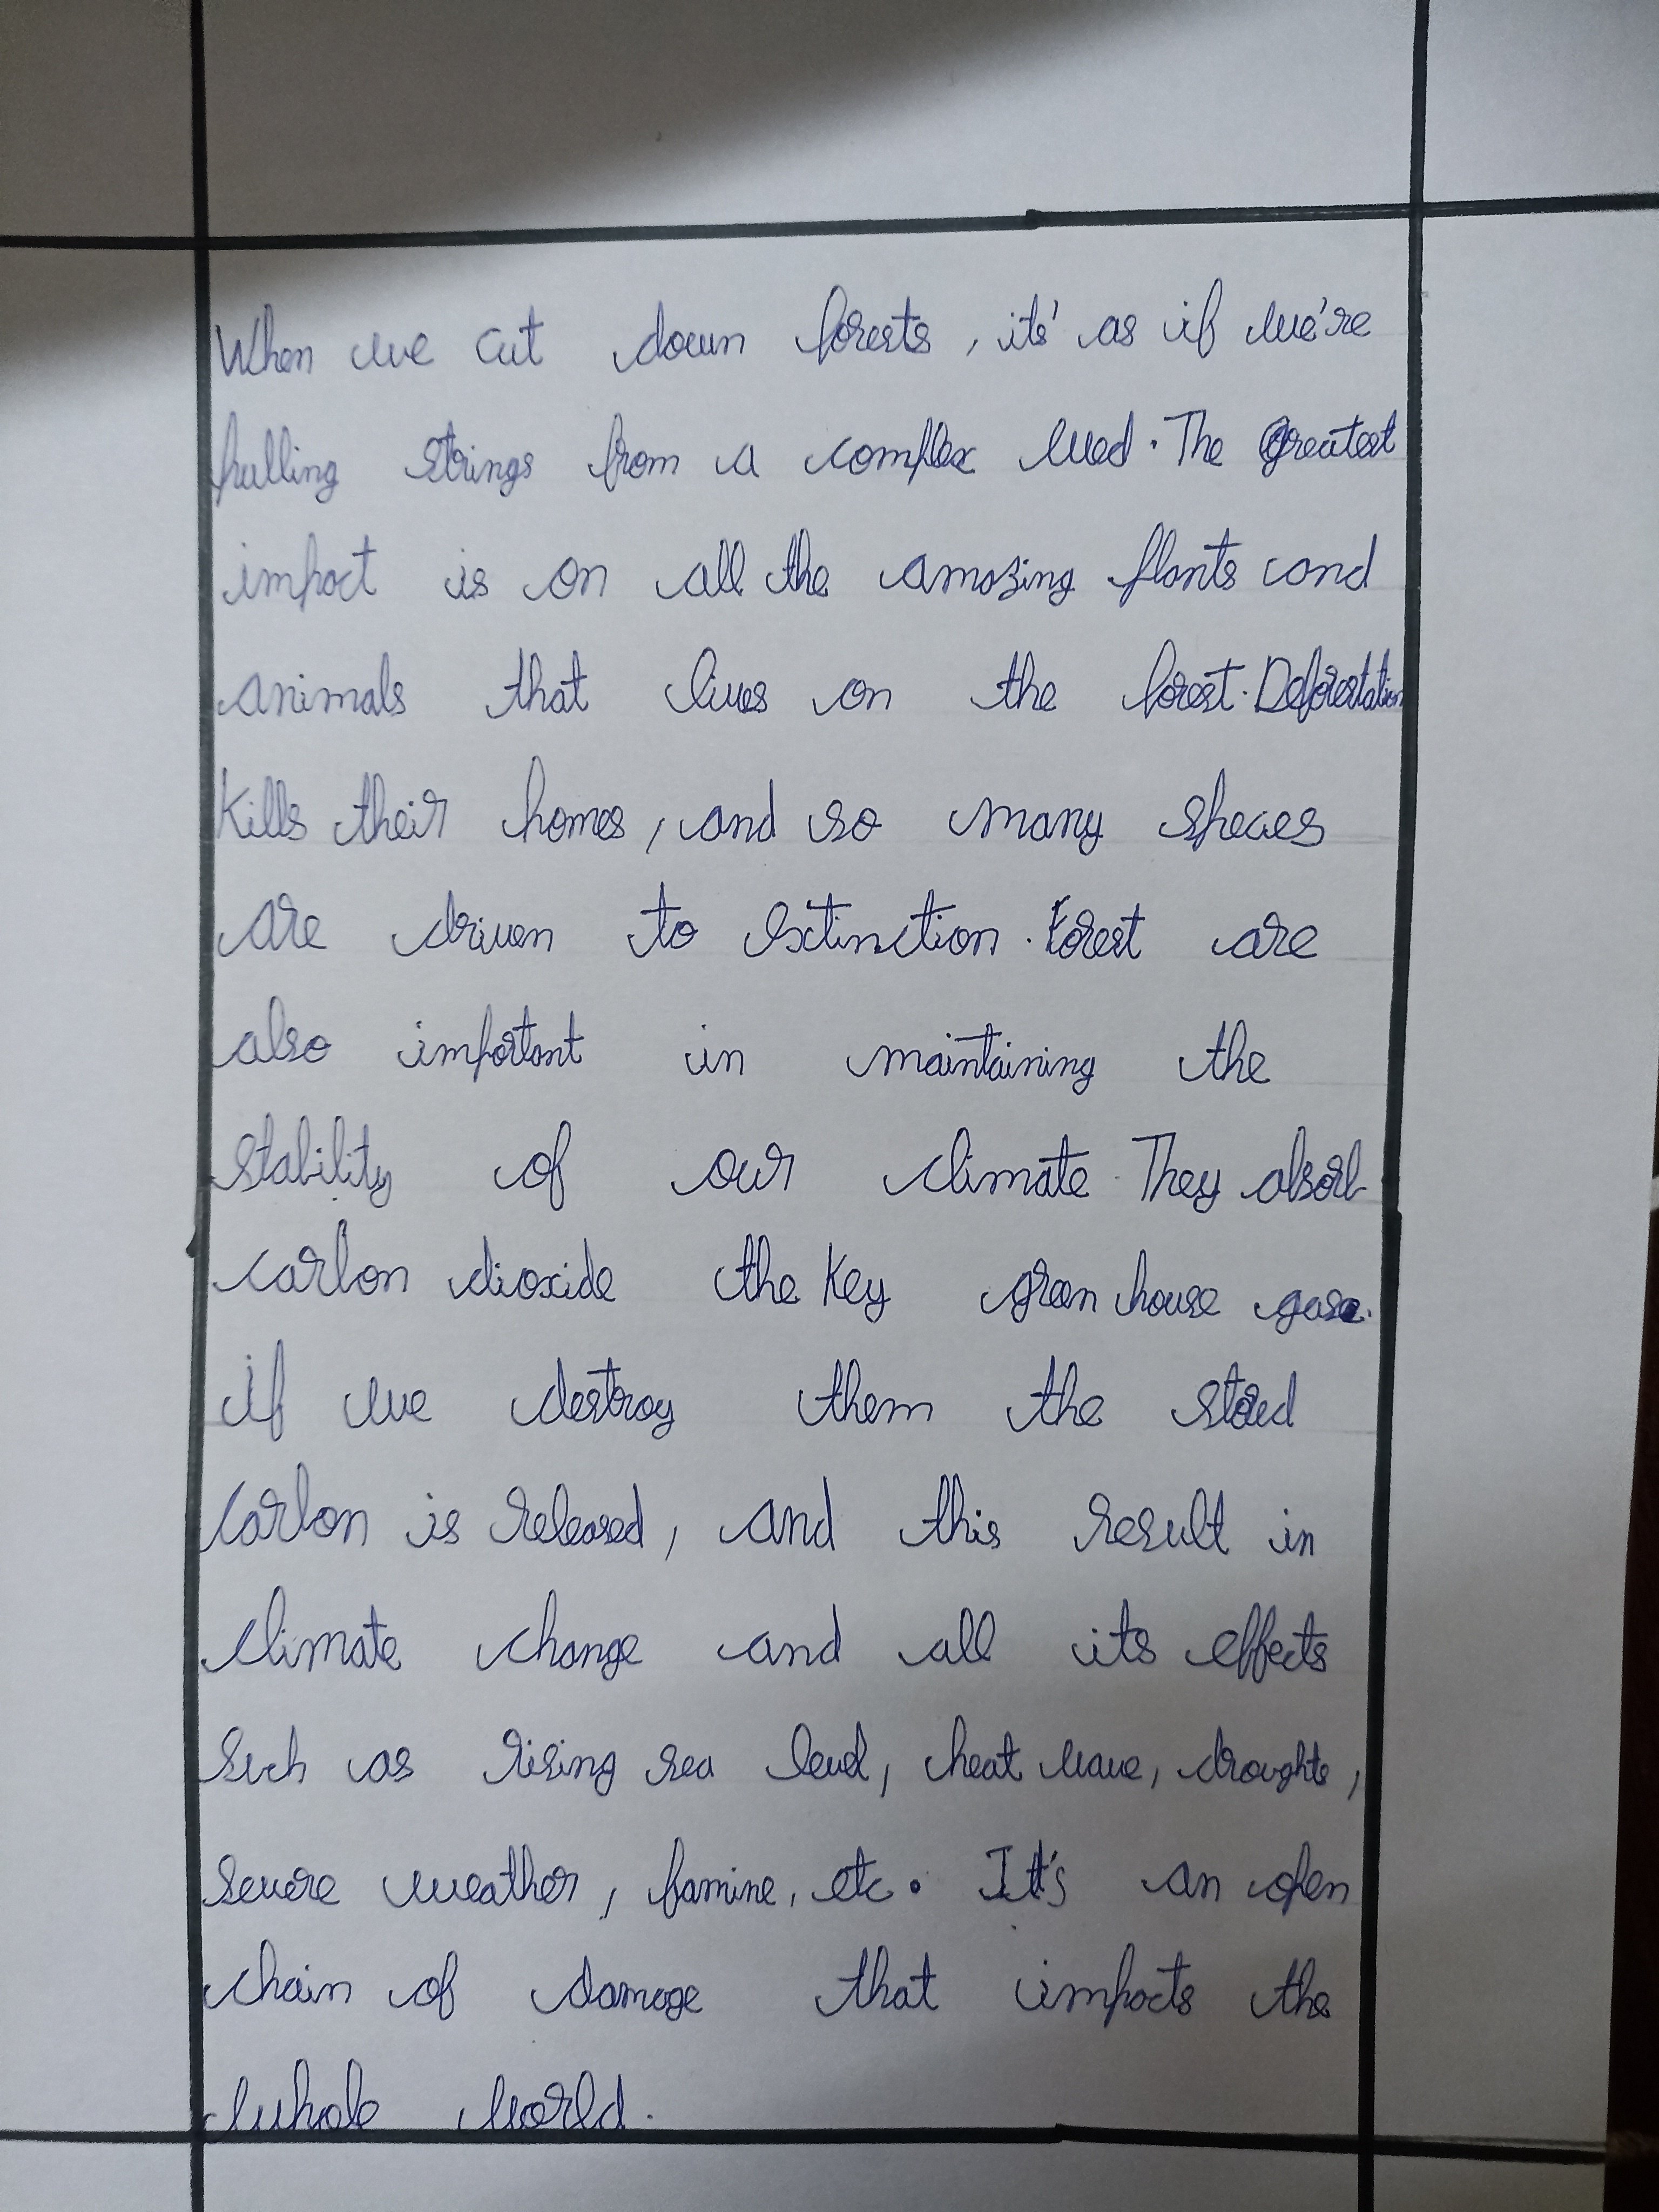 When we cut down forests, its' as if we're
pulling strings from a complex wed. The Greatest
impact is on all the amazing plants and
animals that lives on the forest. Deforestation
kills their homes, and so many species
are driven to extinction. Forest are
also important in maintaining the
stability of our climate. They absorb
carbon dioxide the key green house gase.
if we destroy them the stored
carbon is released, and this result in
climate change and all its effects
such as rising sea level, heat wave, droughts,
severe weather, famine, etc. It's an open
chain of damage that impacts the
whole world.